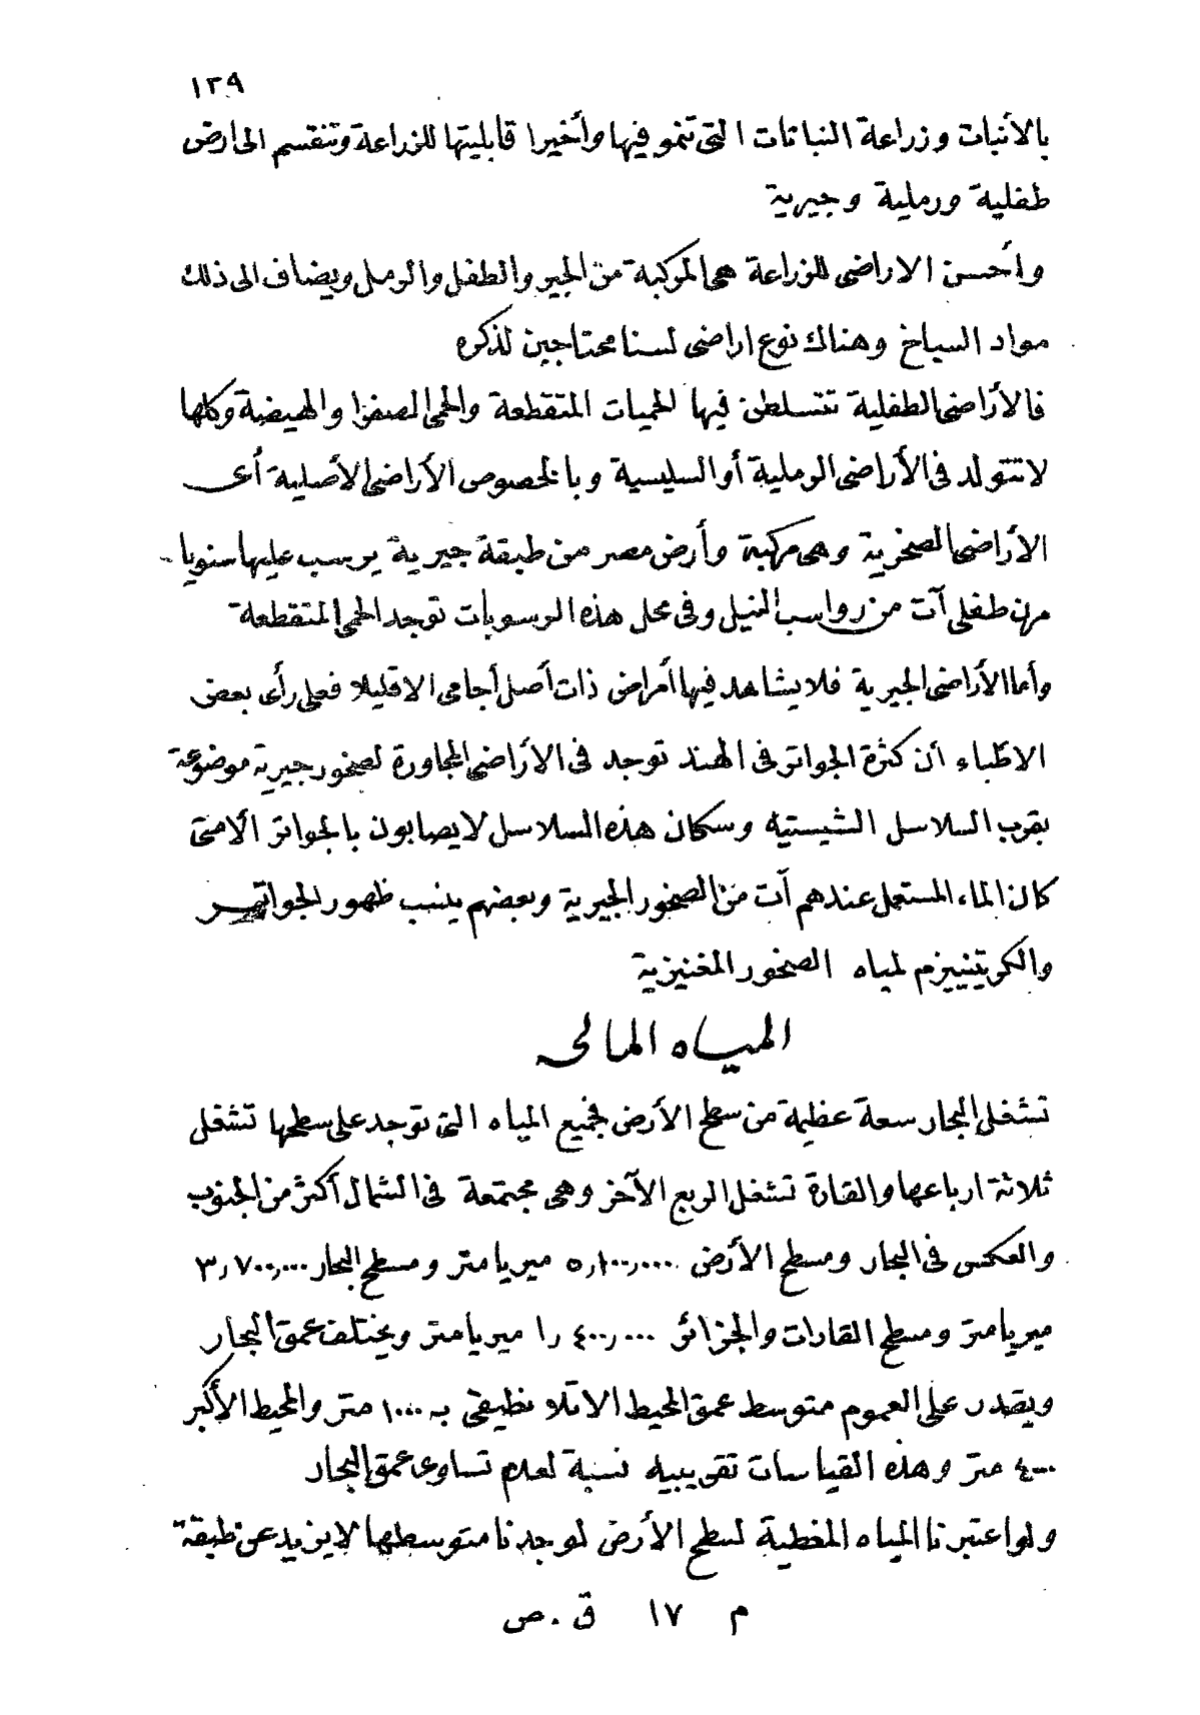 ١٢٩
بالأنبات وزراعة النباتات التى تنمو فيها وأخيرا قابليتها للزراعة وتنقسم الى ارض
طفلية ورملية وجيرية
وأحسن الاراضى للزراعة هى المركبة من الجير والطفل والرمل ويضاف الى ذلك
مواد السباخ وهناك نوع اراضى لسنا محتاجين لذكره
فالأراضى الطفلية تتسلطن فيها الحميات المتقطعة والحمى الصفرا والهيضة وكلها
لا تتولد فى الأراضى الرملية أو السليسية وبالخصوص الأراضى الأصلية أى
الأراضى الصخرية وهى مركبة وأرض مصر من طبقة جيرية يرسب عليها سنويا
من طفلى آت من رواسب النيل وفى محل هذه الرسوبات توجد الحمى المتقطعة
وأما الأراضى الجيرية فلا يشاهد فيها أمراض ذات أصل أجامى الا قليلا فعلى رأى بعض
الاطباء أن كثرة الجواتر فى الهند توجد فى الأراضى المجاورة لصخور جيرية موضوعة
بقرب السلاسل الشيستيه وسكان هذه السلاسل لا يصابون بالجواتر الا متى
كان الماء المستعمل عندهم آت من الصخور الجيرية وبعضهم ينسب ظهور الجواتر
والكريتينيزم لمياه الصخور المغنيزية
المياه المالحه
تشغل البحار سعة عظيمة من سطح الأرض فجميع المياه التى توجد على سطحها تشغل
ثلاثة ارباعها والقارة تشغل الربع الآخر وهى مجتمعة فى الشمال أكثر من الجنوب
والعكس فى البحار ومسطح الأرض ٥٫١٠٠٫٠٠٠ ميريامتر ومسطح البحار ٣٫٧٠٠٫٠٠٠
ميريامتر ومسطح القارات والجزائر ١٫٤٠٠٫٠٠٠ ميريامتر ويختلف عمق البحار
ويقدر على العموم متوسط عمق المحيط الاتلانطيقى بـ ١٠٠٠ متر والمحيط الأكبر
٤٠٠٠ متر وهذه القياسات تقريبيه نسبة لعدم تساوى عمق البحار
ولو اعتبرنا المياه المغطية لسطح الأرض لوجدنا متوسطها لا يزيد عن طبقة
م ١٧ ق . ص